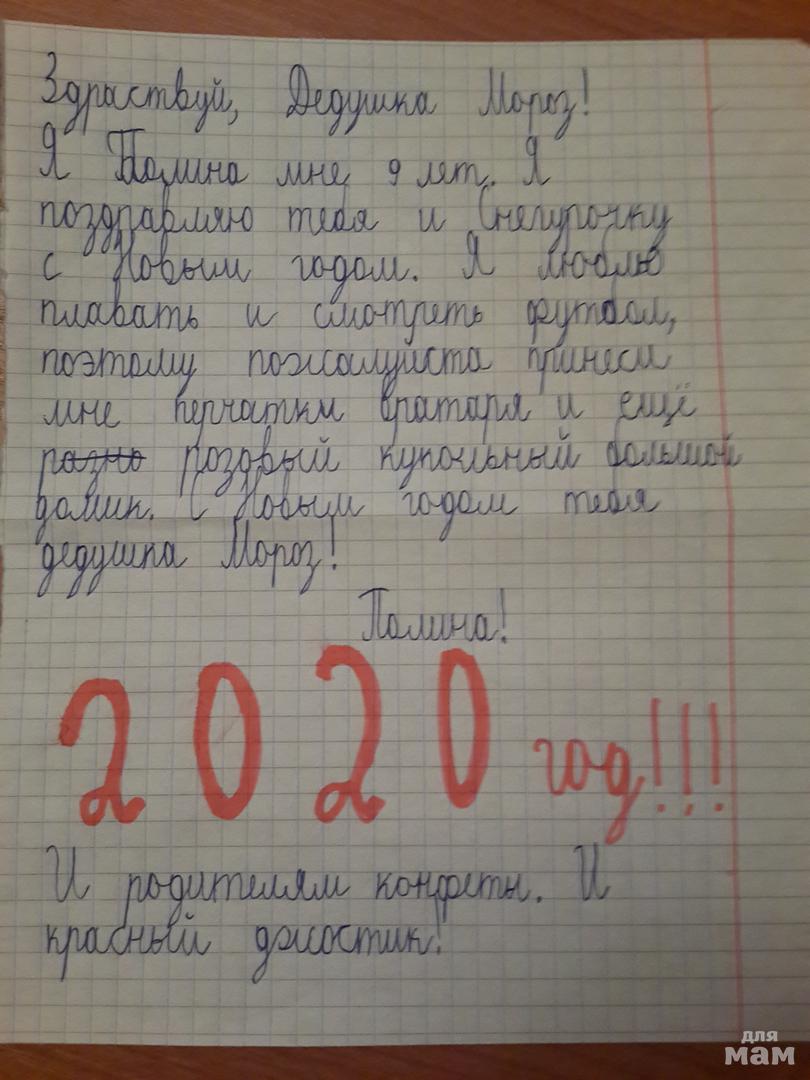 Здраствуй, Дедушка Мороз!
Я Полина мне 9 лет. Я
поздравляю тебя и Снегурочку
с Новым годом. Я люблю
плавать и смотреть футбол,
поэтому пожалуйста принеси
мне перчатки вратаря и ещё
разно роздвый купольный большой
домик. С Новым годом тебя
дедушка Мороз!
Полина!
2020 год!!!
И родителям конфеты. И
красный джостик!
для
мам